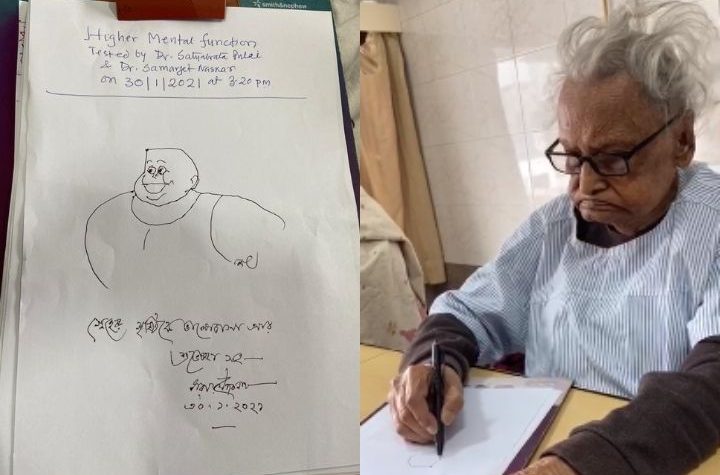 smith&nephew
Higher Mental function
Tested by Dr. Satyabrata
& Dr. Samarjet Naskar
on 30/1/2021 at 3:20 pm
ভালোবাসা আর
শুভেচ্ছা সহ —
৩০.১.২০২১